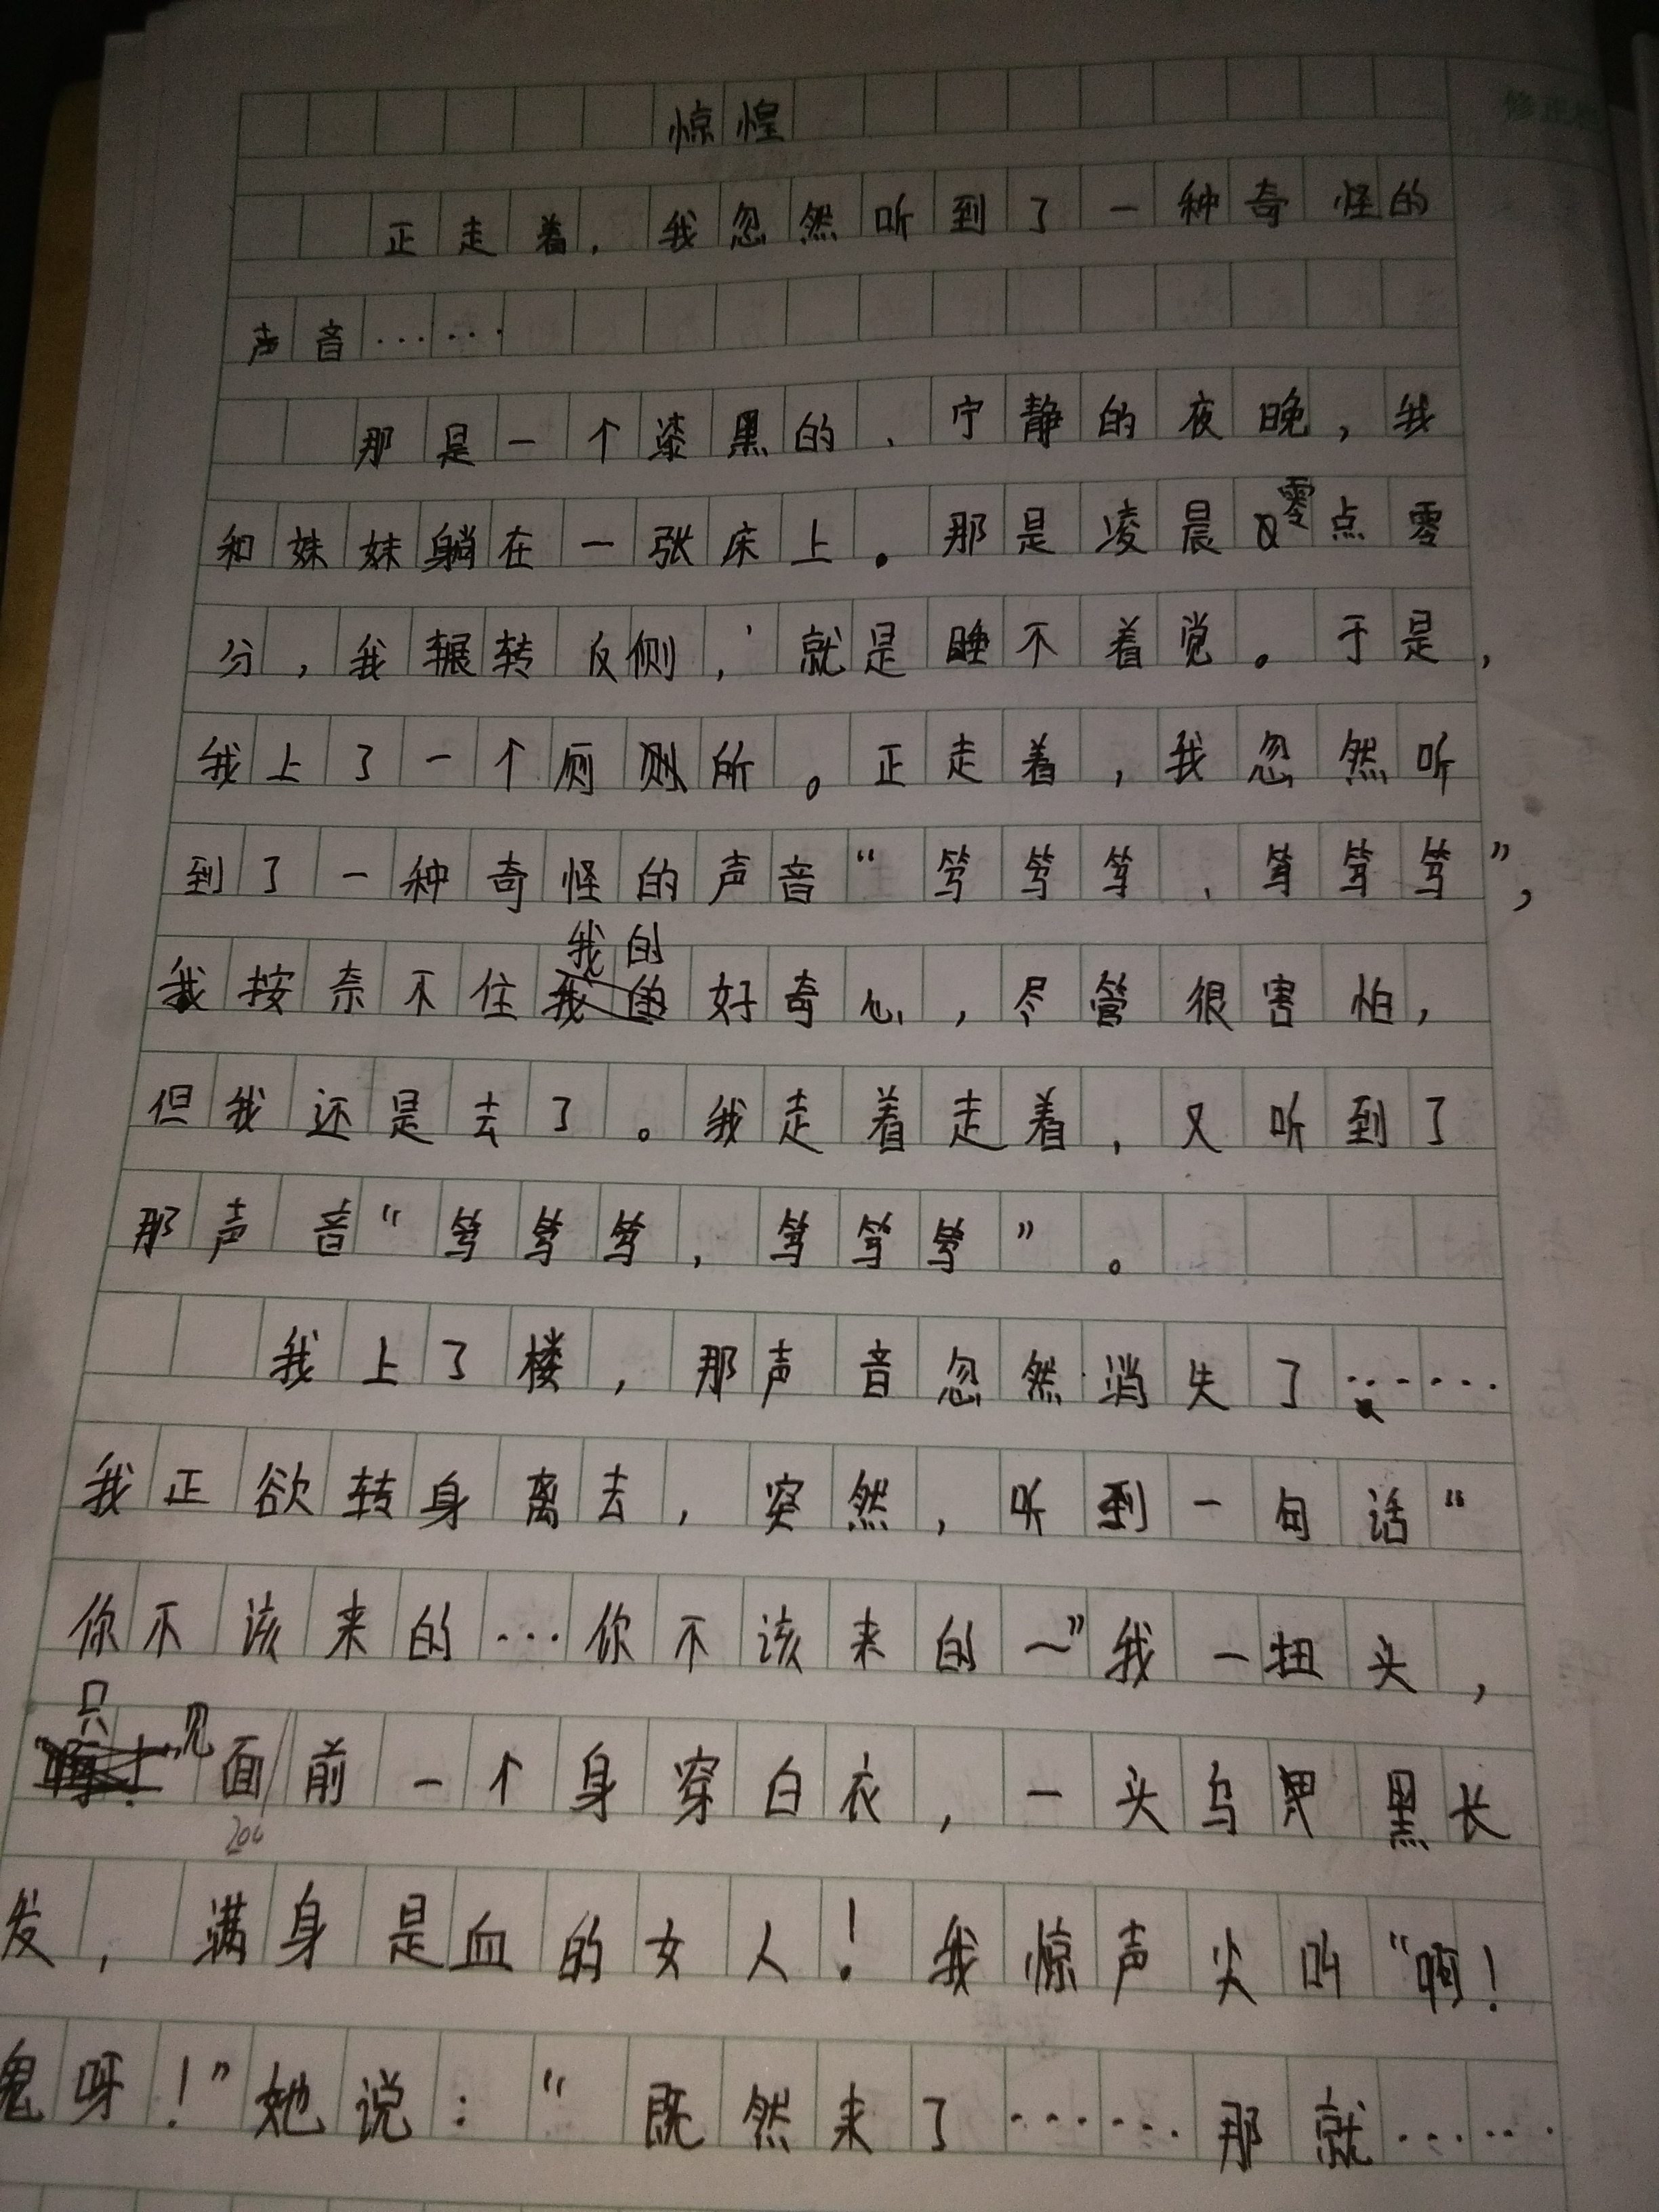 惊惶
正走着，我忽然听到了一种奇怪的
声音……
那是一个漆黑的、宁静的夜晚，我
和妹妹躺在一张床上。那是凌晨零点零
分，我辗转反侧，就是睡不着觉。于是，
我上了一个厕所。正走着，我忽然听
到了一种奇怪的声音“笃笃笃，笃笃笃”，
我按奈不住我的好奇心，尽管很害怕，
但我还是去了。我走着走着，又听到了
那声音“笃笃笃，笃笃笃”。
我上了楼，那声音忽然消失了……
我正欲转身离去，突然，听到一句话“
你不该来的…你不该来的～”我一扭头，
只见面前一个身穿白衣，一头乌黑长
200
发，满身是血的女人！我惊声尖叫“啊！
鬼呀！”她说：“既然来了……那就……